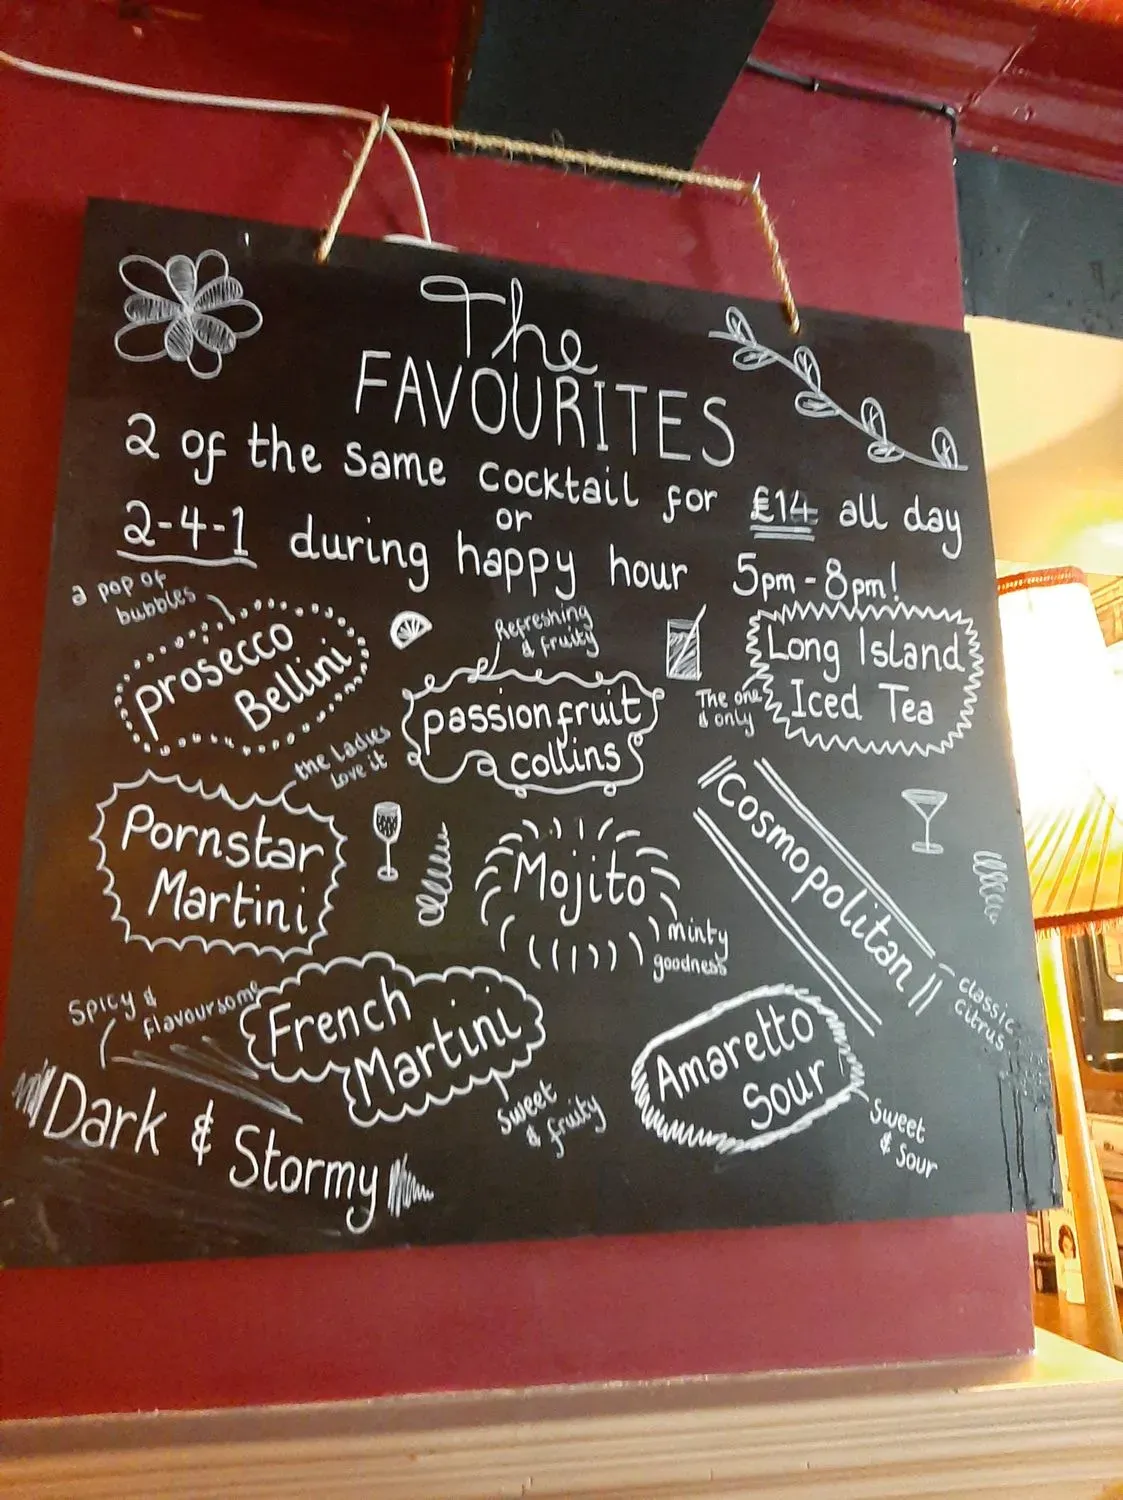 The
FAVOURITES
2 of the same cocktail for £14 all day
or
2-4-1 during happy hour 5pm - 8pm!
a pop of
bubbles
prosecco
Bellini
Refreshing
& fruity
passionfruit
collins
Long Island
Iced Tea
The one
& only
the ladies
love it
Pornstar
Martini
Mojito
minty
goodness
Cosmopolitan
classic
citrus
Spicy &
flavoursome
Dark & Stormy
French
Martini
Sweet
& fruity
Amaretto
Sour
Sweet
& Sour